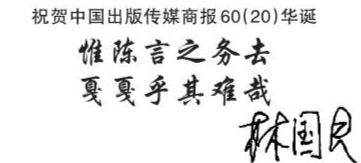 祝贺中国出版传媒商报60(20)华诞
惟陈言之务去
戛戛乎其难哉
林国良